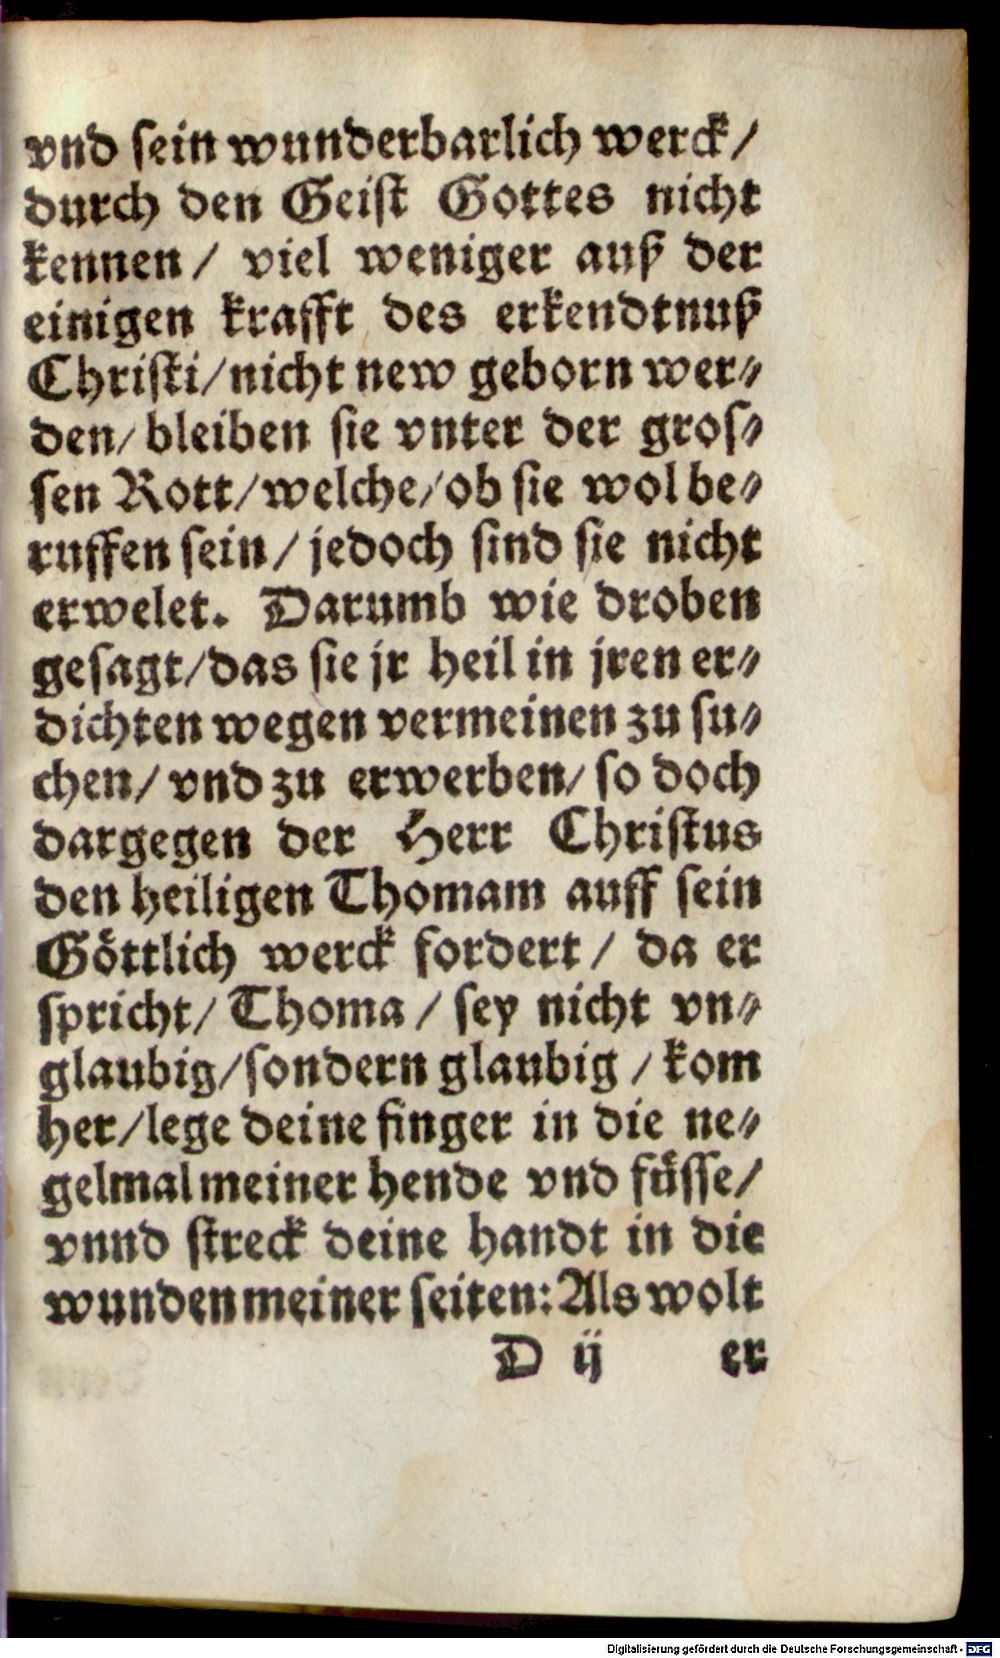 vnd sein wunderbarlich werck/
durch den Geist Gottes nicht
kennen/ viel weniger auß der
einigen krafft des erkendtnuß
Christi/nicht new geborn wer-
den/ bleiben sie vnter der gros-
sen Rott/welche/ob sie wol be-
ruffen sein/ jedoch sind sie nicht
erwelet. Darumb wie droben
gesagt/das sie jr heil in jren er-
dichten wegen vermeinen zu su-
chen/ vnd zu erwerben/ so doch
dargegen der Herr Christus
den heiligen Thomam auff sein
Göttlich werck fordert/ da er
spricht/ Thoma/ sey nicht vn-
glaubig/sondern glaubig/ kom
her/lege deine finger in die ne-
gelmal meiner hende vnd füsse/
vnnd streck deine handt in die
wunden meiner seiten: Als wolt
D ij er
Digitalisierung gefördert durch die Deutsche Forschungsgemeinschaft - DFG